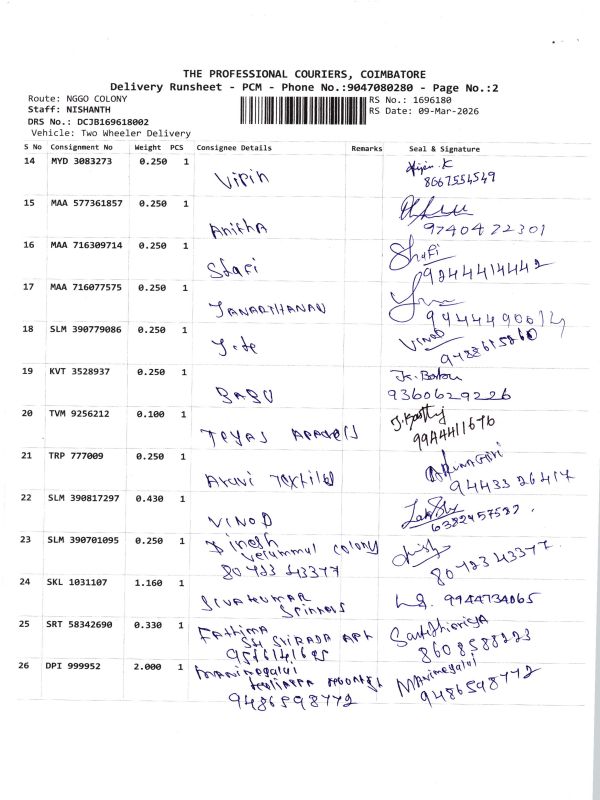 THE PROFESSIONAL COURIERS, COIMBATORE
Delivery Runsheet - PCM - Phone No.:9047080280 - Page No.:2
Route: NGGO COLONY RS No.: 1696180
Staff: NISHANTH RS Date: 09-Mar-2026
DRS No.: DCJB169618002
Vehicle: Two Wheeler Delivery
S No Consignment No Weight PCS Consignee Details Remarks Seal & Signature
14 MYD 3083273 0.250 1 Vipin
8667554549
15 MAA 577361857 0.250 1 Anitha
9740422301
16 MAA 716309714 0.250 1 Shafi Shafi
9244414442
17 MAA 716077575 0.250 1 JANARTHANAN
18 SLM 390779086 0.250 1 VINOD
19 KVT 3528937 0.250 1 BABU
9360629226
20 TVM 9256212 0.100 1 TEJAS APPARELS
9944411676
21 TRP 777009 0.250 1 Aravi Textiles ARUNAGIRI
9443326417
22 SLM 390817297 0.430 1 VINOD
6382457532.
23 SLM 390701095 0.250 1 Dinesh
colony
8072343377 8072343377
24 SKL 1031107 1.160 1 SIVAKUMAR
Spinners 9944734065
25 SRT 58342690 0.330 1 Fathima
8608588223
26 DPI 999952 2.000 1 Manimegalai Manimegalai
9486598772 9486598772